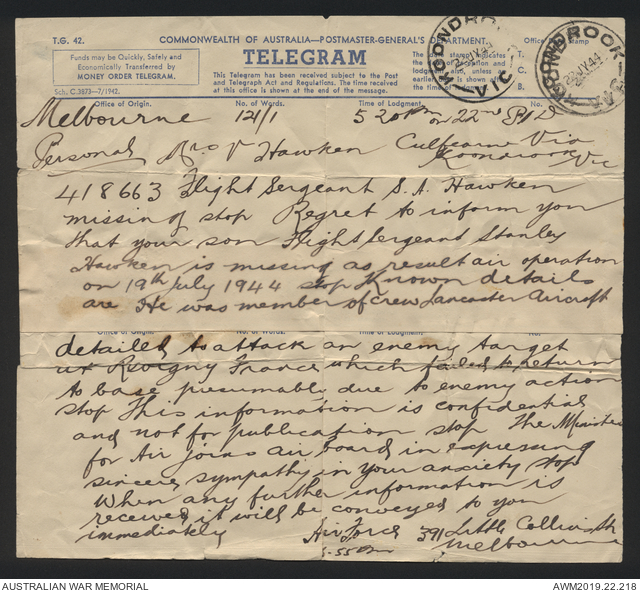 T.G. 42.
COMMONWEALTH OF AUSTRALIA—POSTMASTER-GENERAL'S DEPARTMENT.
Office Date Stamp
Funds may be Quickly, Safely and
Economically Transferred by
MONEY ORDER TELEGRAM.
TELEGRAM
This Telegram has been received subject to the Post
and Telegraph Act and Regulations. The time received
at this office is shown at the end of the message.
The date stamp indicates
the of reception and
lodgment also, unless
date is shown after
the time of lodgment.
T.
C.
B.
Sch. C.3873—7/1942.
KOONDROOK
VIC
KOONDROOK
22 JY 44
Office of Origin. No. of Words. Time of Lodgment. No.
Melbourne 121/1 5 20 Pm on 22nd
Personal Mrs V Hawken Via
Koondrook Vic
418663 Flight Sergeant S. A. Hawken
missing stop Regret to inform you
that your son Flight Sergeant Stanley
Hawken is missing as result air operation
on 19th July 1944 stop Known details
are He was member of crew Lancaster Aircraft
Office of Origin. No. of Words. Time of Lodgment. No.
detailed to attack an enemy target
at Revigny France which failed to return
to base presumably due to enemy action
stop This information is confidential
and not for publication stop The Minister
for Air joins air board in expressing
sincere sympathy in your anxiety stop
When any further information is
received it will be conveyed to you
immediately Air Force 391 Little Collins St
Melbourne
5-55 Pm
AUSTRALIAN WAR MEMORIAL
AWM2019.22.218